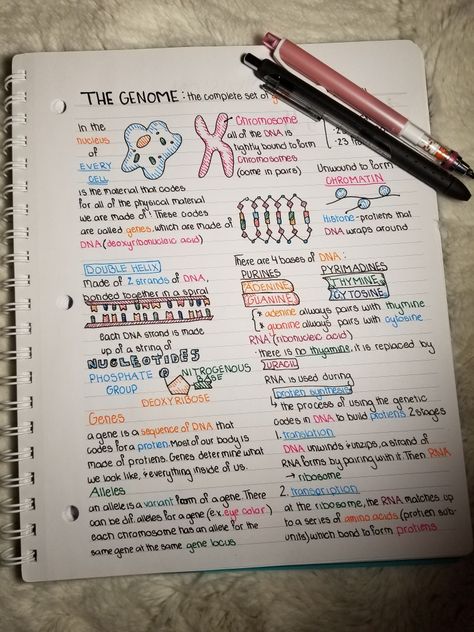 THE GENOME: the complete set of
In the
nucleus
of
EVERY
CELL
is the material that codes
for all of the physical material
we are made of! These codes
are called genes, which are made of
DNA (deoxyribonucleic acid)
Chromosome
all of the DNA is
tightly bound to form
Chromosomes
(come in pairs)
Unwound to form
CHROMATIN
Histone-proteins that
DNA wraps around
DOUBLE HELIX
Made of 2 strands of DNA,
bonded together in a spiral
Each DNA strand is made
up of a string of
NUCLEOTIDES
PHOSPHATE
GROUP
NITROGENOUS
BASE
DEOXYRIBOSE
There are 4 bases of DNA:
PURINES
ADENINE
GUANINE
PYRIMADINES
THYMINE
CYTOSINE
* adenine always pairs with thymine
* guanine always pairs with cytosine
RNA (ribonucleic acid)
· there is no thyamine, it is replaced by
URACIL
RNA is used during
protien synthesis
↳ the process of using the genetic
codes in DNA to build protiens 2 stages
1. translation
DNA unwinds & unzips, a strand of
RNA forms by pairing with it. Then RNA
→ ribosome
2. transcription
at the ribosome, the RNA matches up
to a series of amino acids (protien sub-
units) which bond to form protiens
Genes
a gene is a sequence of DNA that
codes for a protien. Most of our body is
made of protiens. Genes determine what
we look like, & everything inside of us.
Alleles
an allele is a variant form of a gene. There
can be dif. alleles for a gene (ex. eye color)
each chromosome has an allele for the
same gene at the same gene locus